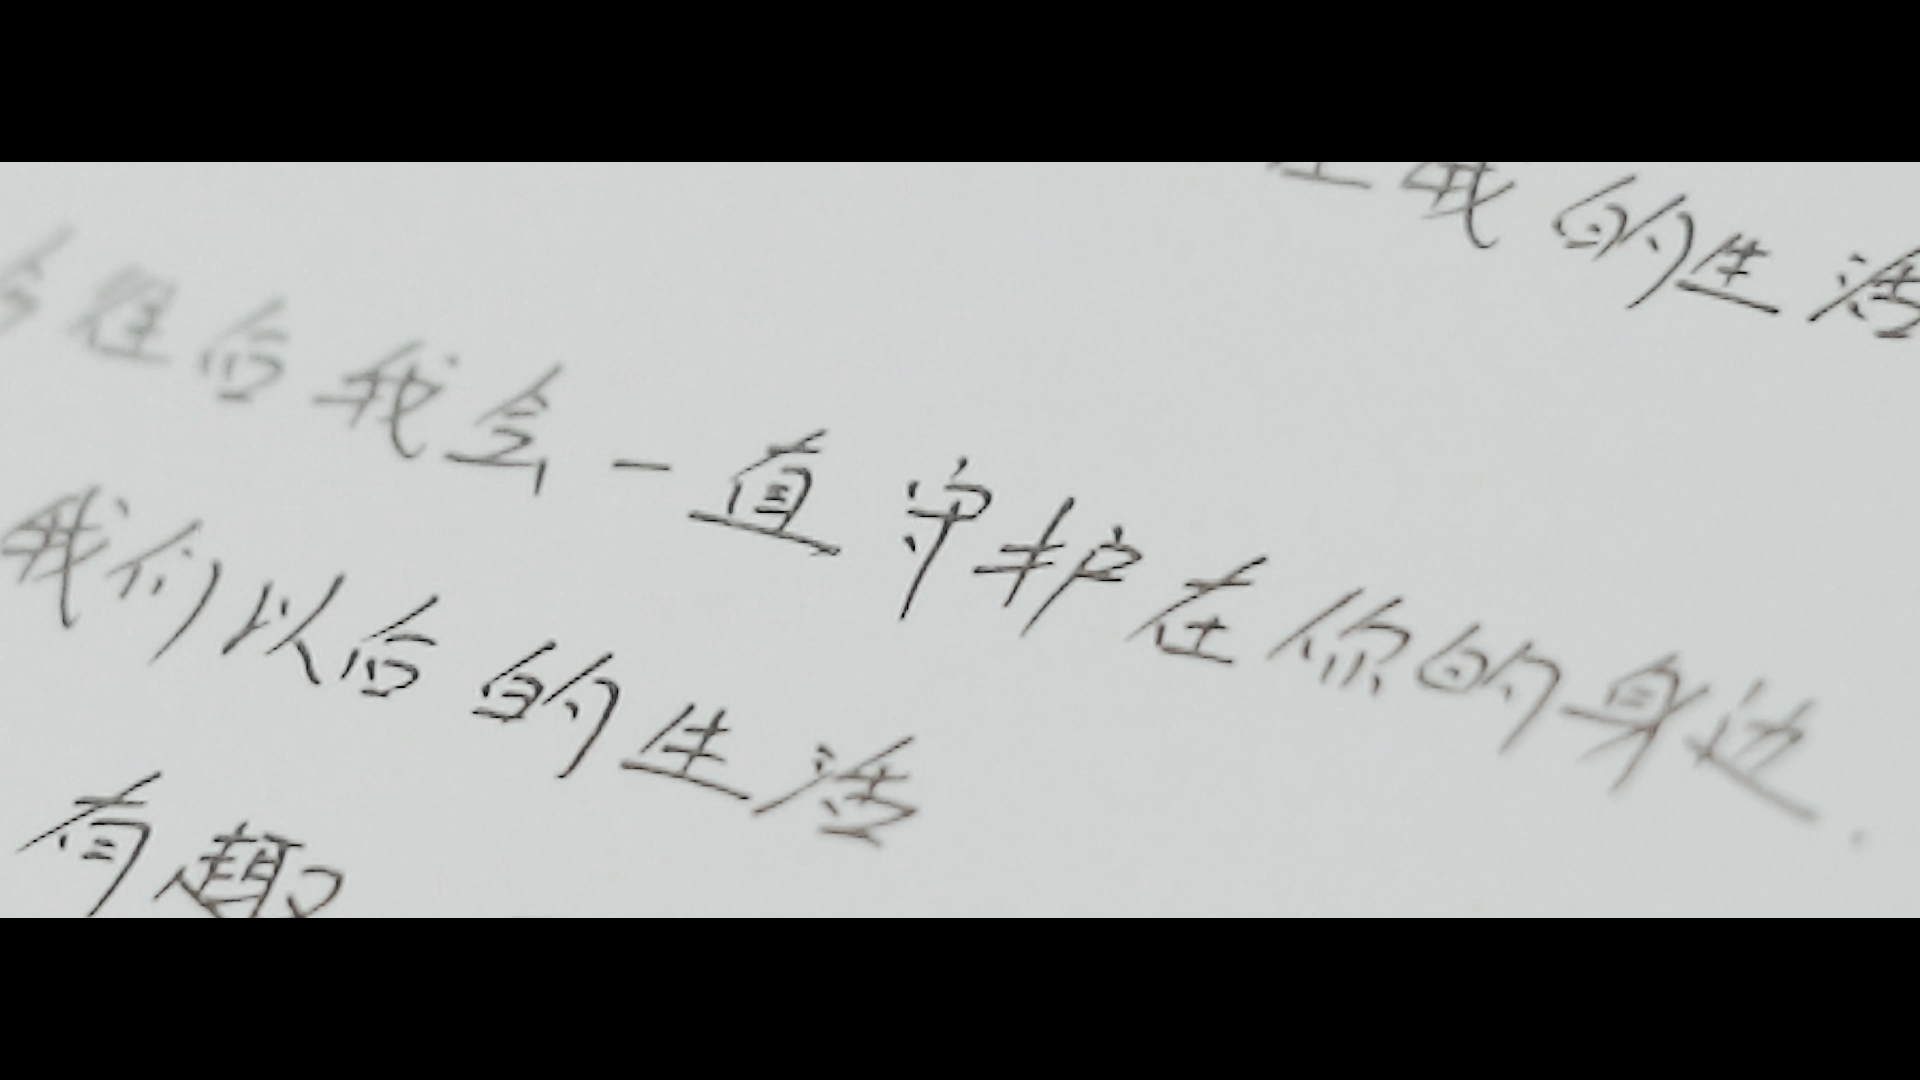 我的生活
后我会一直守护在你的身边.
我们以后的生活
有趣